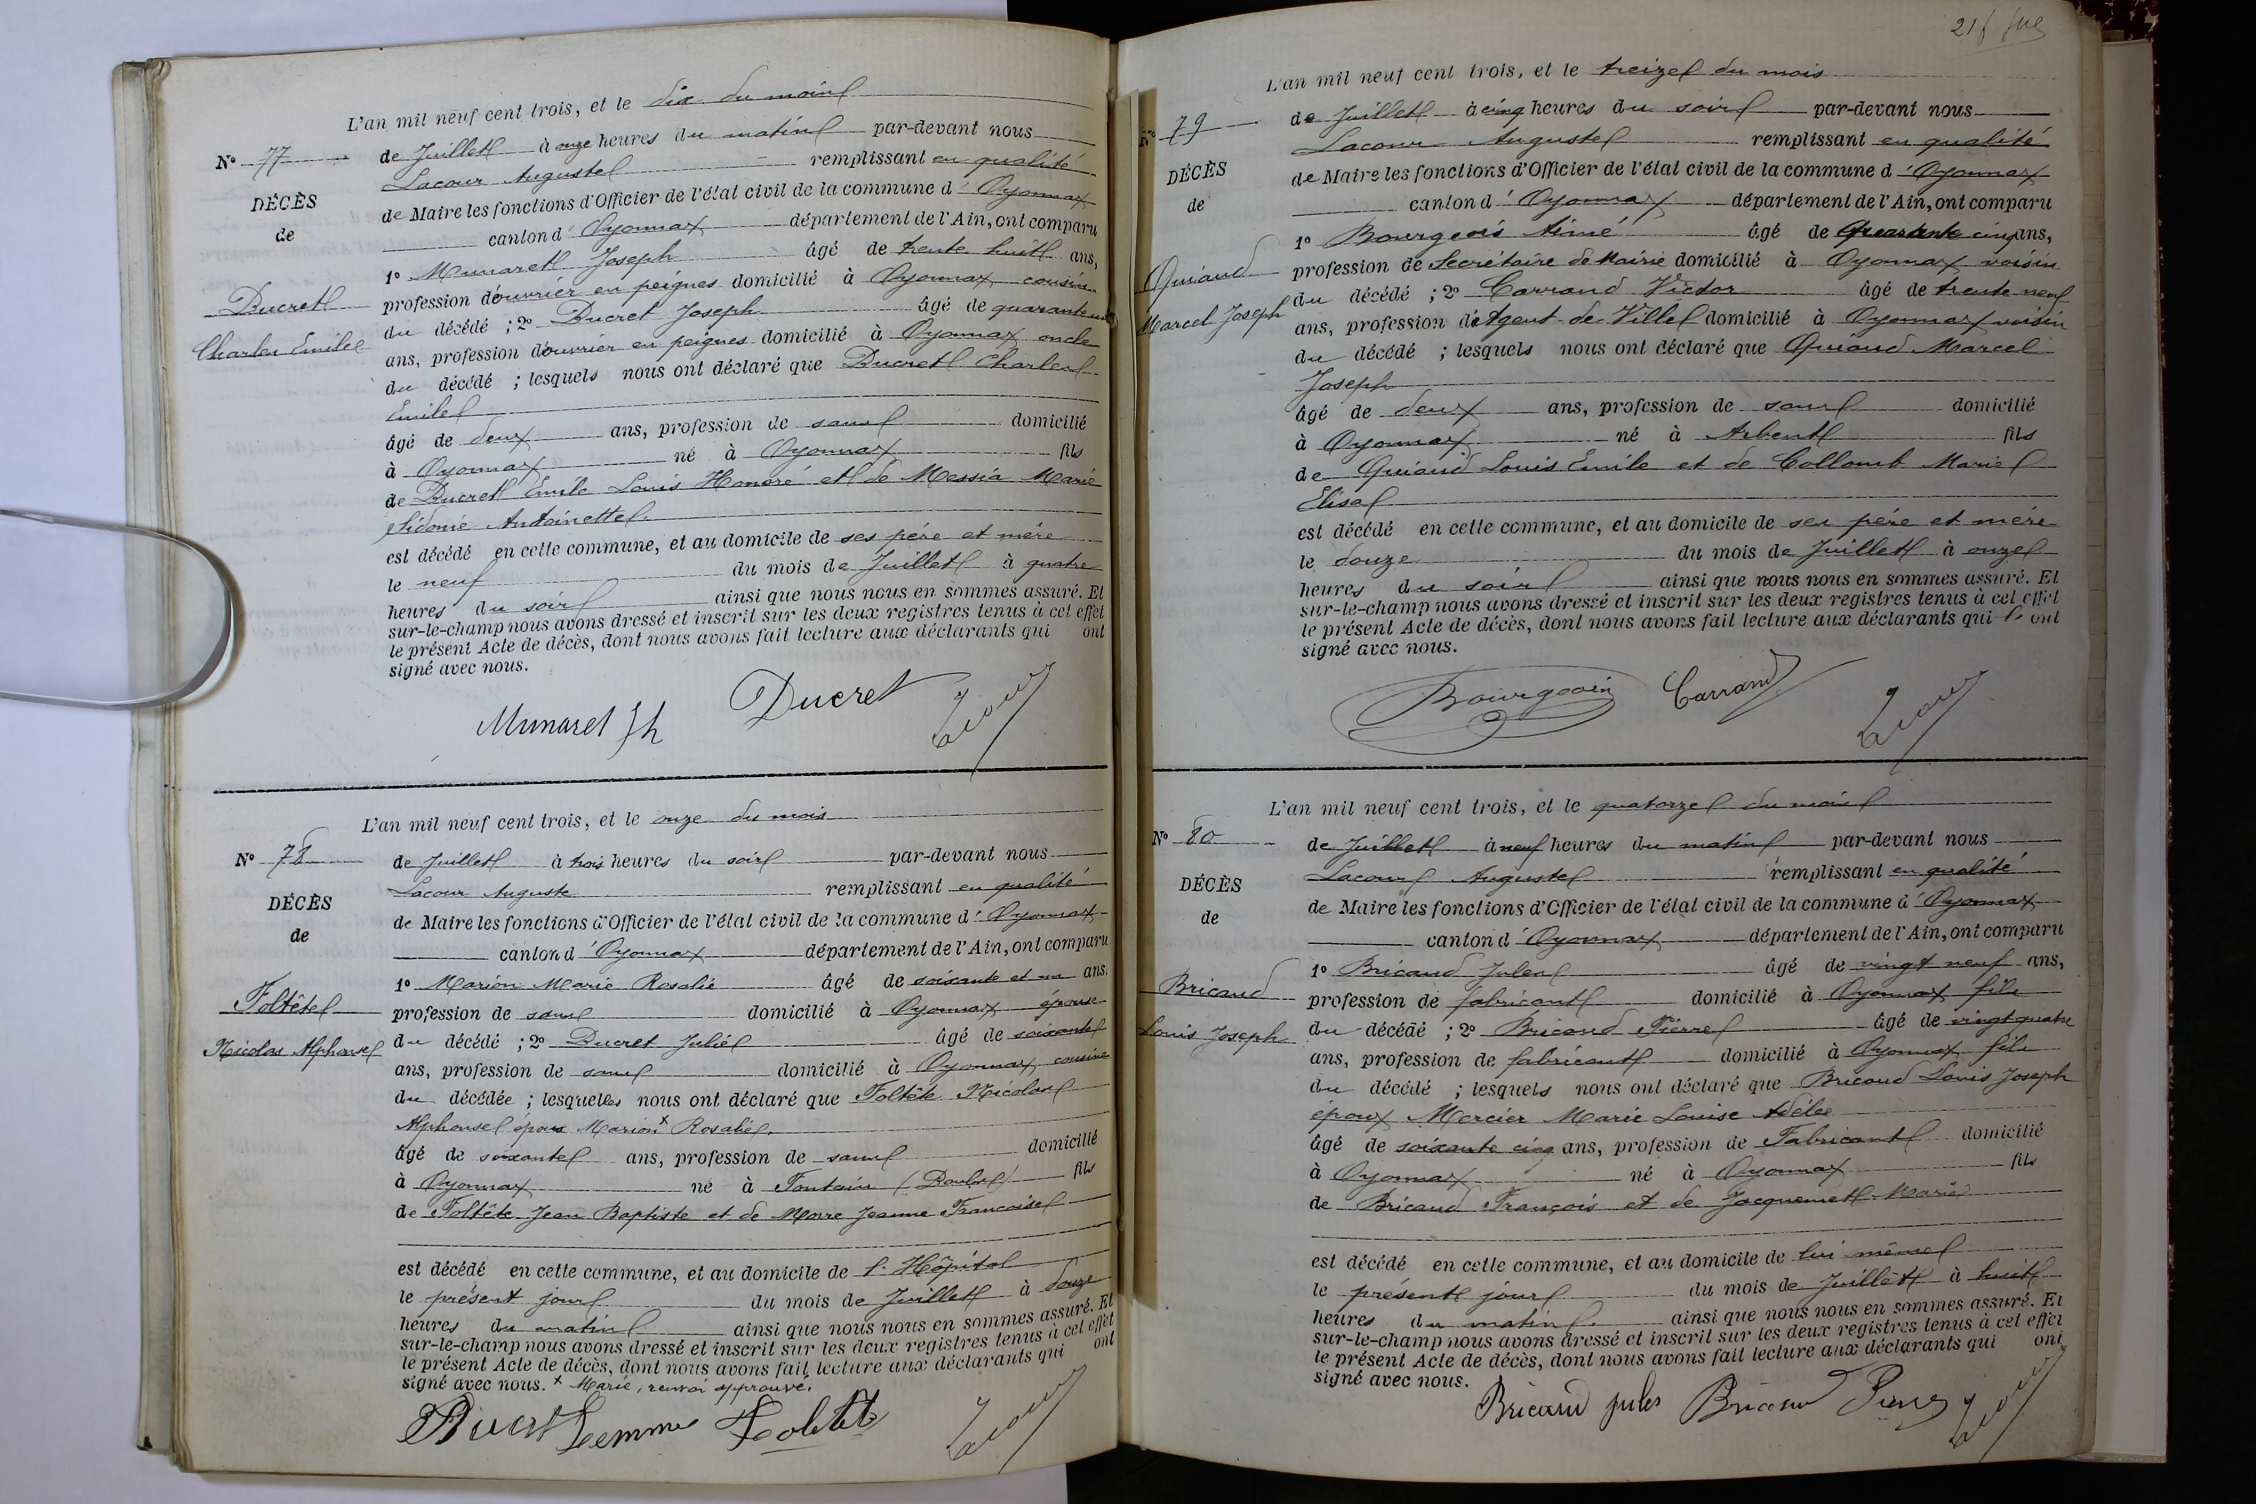 L'an mil neuf cent trois, et le dix du mois
N° 77
de Juillet à onze heures du matin par-devant nous
Lacour Auguste remplissant en qualité
DÉCÈS
de Maire les fonctions d'Officier de l'état civil de la commune d'Oyonnax
de
canton d'Oyonnax département de l'Ain, ont comparu
1° Munaret Joseph âgé de trente huit ans,
Ducret
profession d'ouvrier en peignes domicilié à Oyonnax cousin
Charles Emile
du décédé ; 2° Ducret Joseph âgé de quarante
ans, profession d'ouvrier en peignes domicilié à Oyonnax oncle
du décédé ; lesquels nous ont déclaré que Ducret Charles
Emile
âgé de deux ans, profession de sans domicilié
à Oyonnax né à Oyonnax fils
de Ducret Emile Louis Honoré et de Messia Marie
Sidonie Antoinette
est décédé en cette commune, et au domicile de ses père et mère
le neuf du mois de Juillet à quatre
heures du soir ainsi que nous nous en sommes assuré. Et
sur-le-champ nous avons dressé et inscrit sur les deux registres tenus à cet effet
le présent Acte de décès, dont nous avons fait lecture aux déclarants qui ont
signé avec nous.
Munaret Jh Ducret Lacour
L'an mil neuf cent trois, et le onze du mois
N° 78
de Juillet à trois heures du soir par-devant nous
Lacour Auguste remplissant en qualité
DÉCÈS
de Maire les fonctions d'Officier de l'état civil de la commune d'Oyonnax
de
canton d'Oyonnax département de l'Ain, ont comparu
1° Marion Marie Rosalie âgé de soixante et un ans,
Foltête
profession de sans domicilié à Oyonnax épouse
Nicolas Alphonse
du décédé ; 2° Ducret Julie âgé de soixante
ans, profession de sans domicilié à Oyonnax cousine
du décédée ; lesquelles nous ont déclaré que Foltête Nicolas
Alphonse époux Marion x Rosalie,
âgé de soixante ans, profession de sans domicilié
à Oyonnax né à Fontain (Doubs) fils
de Foltête Jean Baptiste et de Jeanne Françoise
est décédé en cette commune, et au domicile de l'Hôpital
le présent jour du mois de Juillet à douze
heures du matin ainsi que nous nous en sommes assuré. Et
sur-le-champ nous avons dressé et inscrit sur les deux registres tenus à cet effet
le présent Acte de décès, dont nous avons fait lecture aux déclarants qui ont
signé avec nous. x Marie, renvoi approuvé.
Ducret femme Foltête Lacour
L'an mil neuf cent trois, et le treize du mois
N° 79
de Juillet à cinq heures du soir par-devant nous
Lacour Auguste remplissant en qualité
DÉCÈS
de Maire les fonctions d'Officier de l'état civil de la commune d'Oyonnax
de
canton d'Oyonnax département de l'Ain, ont comparu
1° Bourgeois Aimé âgé de Quarante cinq ans,
Guiaud
profession de Secrétaire de Mairie domicilié à Oyonnax voisin
Marcel Joseph
du décédé ; 2° Carrand Victor âgé de trente neuf
ans, profession d'Agent de Ville domicilié à Oyonnax voisin
du décédé ; lesquels nous ont déclaré que Guiaud Marcel
Joseph
âgé de deux ans, profession de sans domicilié
à Oyonnax né à Arbent fils
de Guiaud Louis Emile et de Collomb Marie
Elisa
est décédé en cette commune, et au domicile de ses père et mère
le douze du mois de Juillet à onze
heures du soir ainsi que nous nous en sommes assuré. Et
sur-le-champ nous avons dressé et inscrit sur les deux registres tenus à cet effet
le présent Acte de décès, dont nous avons fait lecture aux déclarants qui ont
signé avec nous.
Bourgeois Carrand Lacour
L'an mil neuf cent trois, et le quatorze du mois
N° 80
de Juillet à neuf heures du matin par-devant nous
Lacour Auguste remplissant en qualité
DÉCÈS
de Maire les fonctions d'Officier de l'état civil de la commune d'Oyonnax
de
canton d'Oyonnax département de l'Ain, ont comparu
1° Bricaud Jules âgé de vingt neuf ans,
Bricaud
profession de fabricant domicilié à Oyonnax fils
Louis Joseph
du décédé ; 2° Bricaud Pierre âgé de vingt quatre
ans, profession de fabricant domicilié à Oyonnax fils
du décédé ; lesquels nous ont déclaré que Bricaud Louis Joseph
époux Mercier Marie Louise Adèle
âgé de soixante cinq ans, profession de Fabricant domicilié
à Oyonnax né à Oyonnax fils
de Bricaud François et de Jacquemet Marie
est décédé en cette commune, et au domicile de lui même
le présent jour du mois de Juillet à huit
heures du matin ainsi que nous nous en sommes assuré. Et
sur-le-champ nous avons dressé et inscrit sur les deux registres tenus à cet effet
le présent Acte de décès, dont nous avons fait lecture aux déclarants qui ont
signé avec nous.
Bricaud Jules Bricaud Pierre Lacour